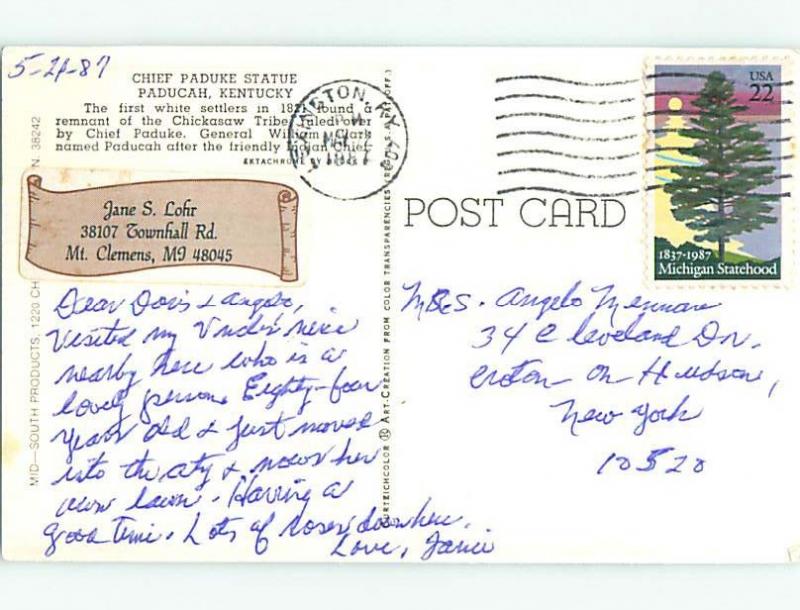 5-21-87
CHIEF PADUKE STATUE
PADUCAH, KENTUCKY
The first white settlers in 1821 found a
remnant of the Chickasaw Tribe ruled over
by Chief Paduke. General William Clark
named Paducah after the friendly Indian Chief.
EKTACHROME BY
Jane S. Lohr
38107 Townhall Rd.
Mt. Clemens, MI 48045
Dear Doris & Angelo,
Visited my
nearby here who is a
lovely person. Eighty-four
years old & just moved
into the city & mows her
own lawn. Having a
good time. Lots of roses down here.
Love, Janie
MID—SOUTH PRODUCTS, 1220 CH
N. 38242
CURTEICHCOLOR ® ART-CREATION FROM COLOR TRANSPARENCIES (REG. U.S.A. PAT. OFF.)
INGTON, KY
PM
1987
405
POST CARD
USA
22
1837-1987
Michigan Statehood
M&S. Angelo
34 Cleveland Dr.
Croton-on-Hudson,
New York
10520